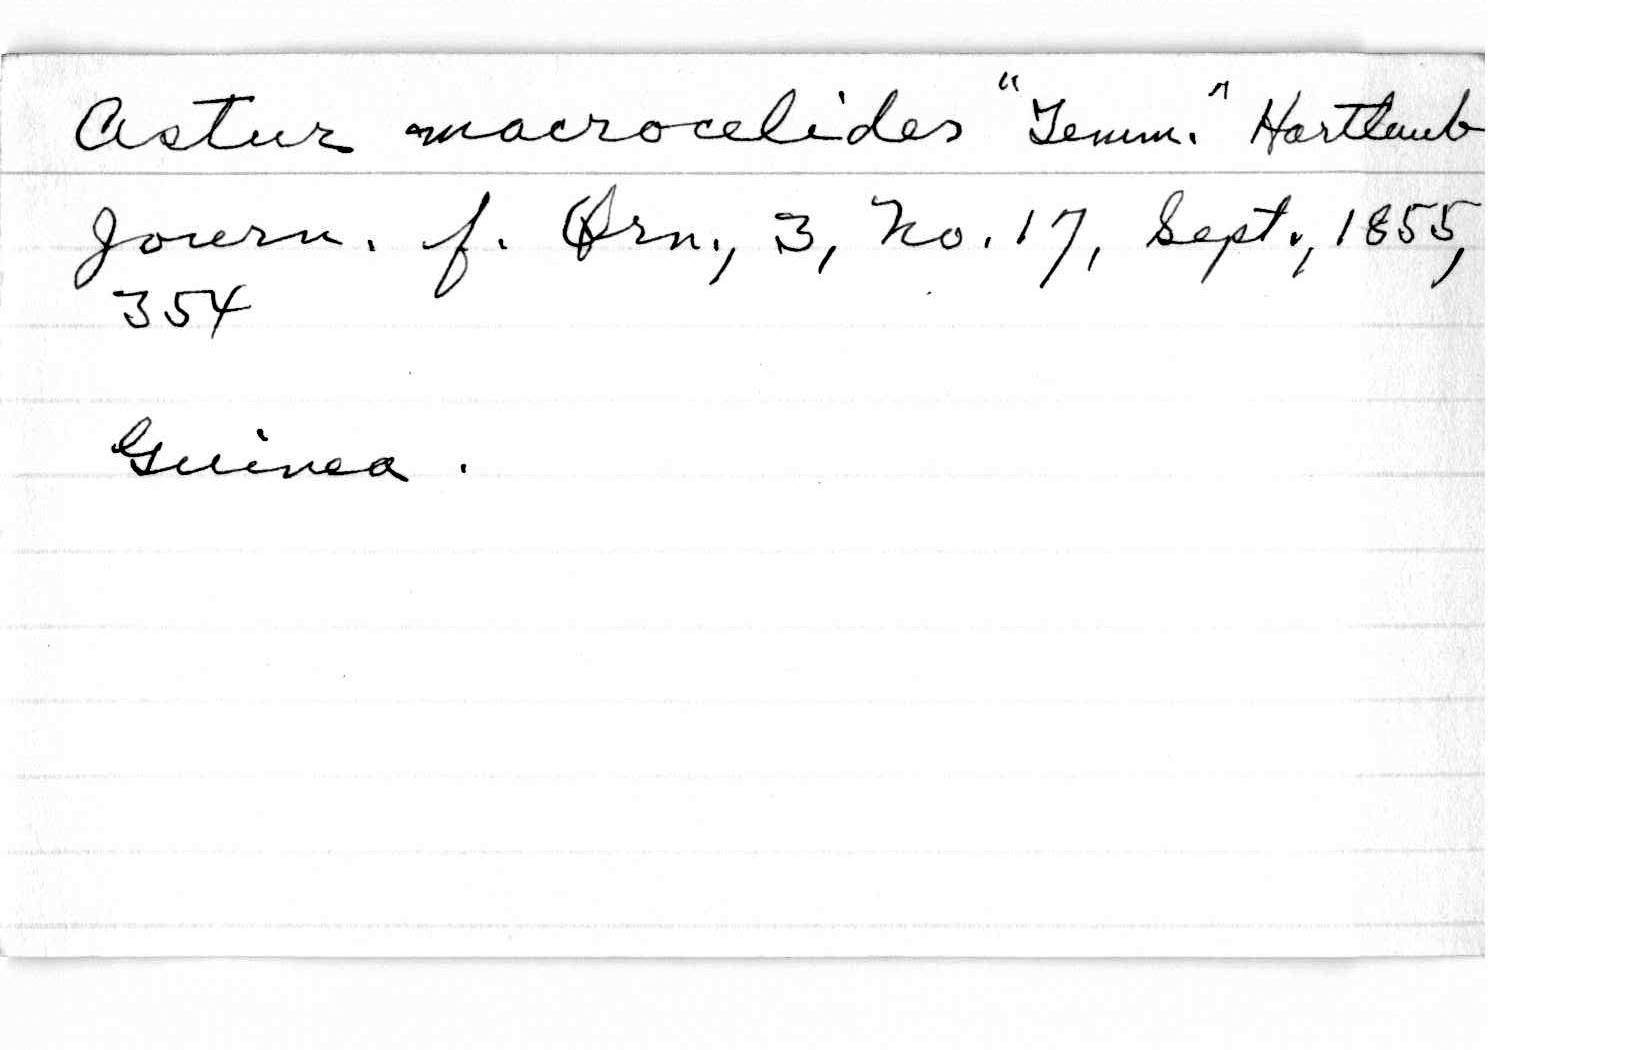 Astur macrocelides "Temm." Hartlaub
Journ. f. Orn., 3, No. 17, Sept., 1855,
354
Guinea.